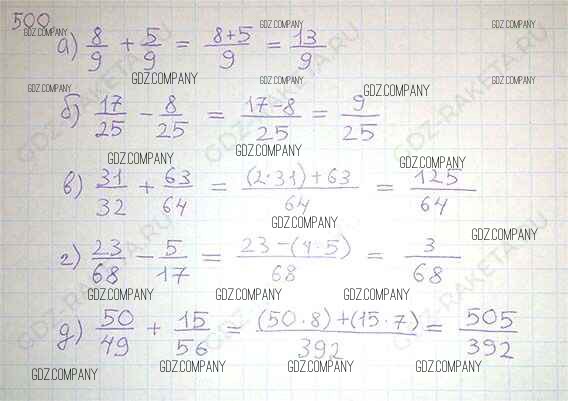 500
GDZ.COMPANY GDZ.COMPANY GDZ.COMPANY
а) 8/9 + 5/9 = (8+5)/9 = 13/9
GDZ.COMPANY GDZ.COMPANY GDZ.COMPANY GDZ.COMPANY
б) 17/25 − 8/25 = (17−8)/25 = 9/25
GDZ.COMPANY GDZ.COMPANY GDZ.COMPANY
в) 31/32 + 63/64 = ((2·31)+63)/64 = 125/64
GDZ.COMPANY GDZ.COMPANY
г) 23/68 − 5/17 = (23−(4·5))/68 = 3/68
GDZ.COMPANY GDZ.COMPANY GDZ.COMPANY
д) 50/49 + 15/56 = ((50·8)+(15·7))/392 = 505/392
GDZ.COMPANY GDZ.COMPANY GDZ.COMPANY GDZ.COMPANY
GDZ-RAKETA.RU
GDZ-RAKETA.RU
GDZ-RAKETA.RU
GDZ-RAKETA.RU